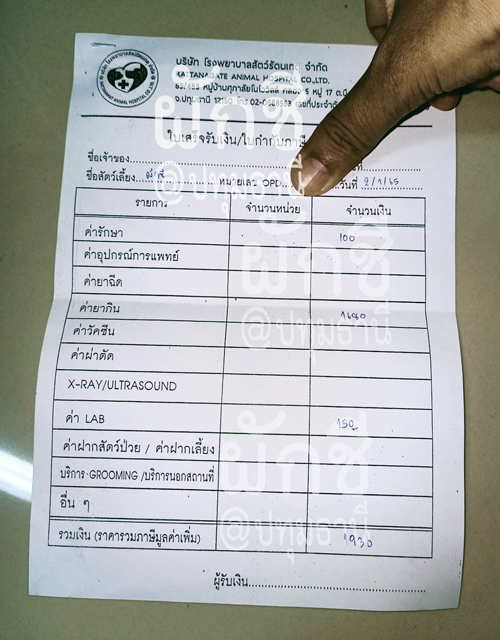 บริษัท โรงพยาบาลสัตว์รัตนเกต จำกัด
RATTANAGATE ANIMAL HOSPITAL CO.,LTD.
ใบเสร็จรับเงิน/ใบกำกับภาษี
ชื่อเจ้าของ
ชื่อสัตว์เลี้ยง ผักชี หมายเลข OPD. วันที่ 9/1/65
รายการ จำนวนหน่วย จำนวนเงิน
ค่ารักษา 100
ค่าอุปกรณ์การแพทย์
ค่ายาฉีด
ค่ายากิน 1680
ค่าวัคซีน
ค่าผ่าตัด
X-RAY/ULTRASOUND
ค่า LAB 150
ค่าฝากสัตว์ป่วย / ค่าฝากเลี้ยง
บริการ-GROOMING /บริการนอกสถานที่
อื่น ๆ
รวมเงิน (ราคารวมภาษีมูลค่าเพิ่ม) 1930
ผู้รับเงิน
ผักชี
@ปทุมธานี
ผักชี
@ปทุมธานี
ผักชี
@ปทุมธานี